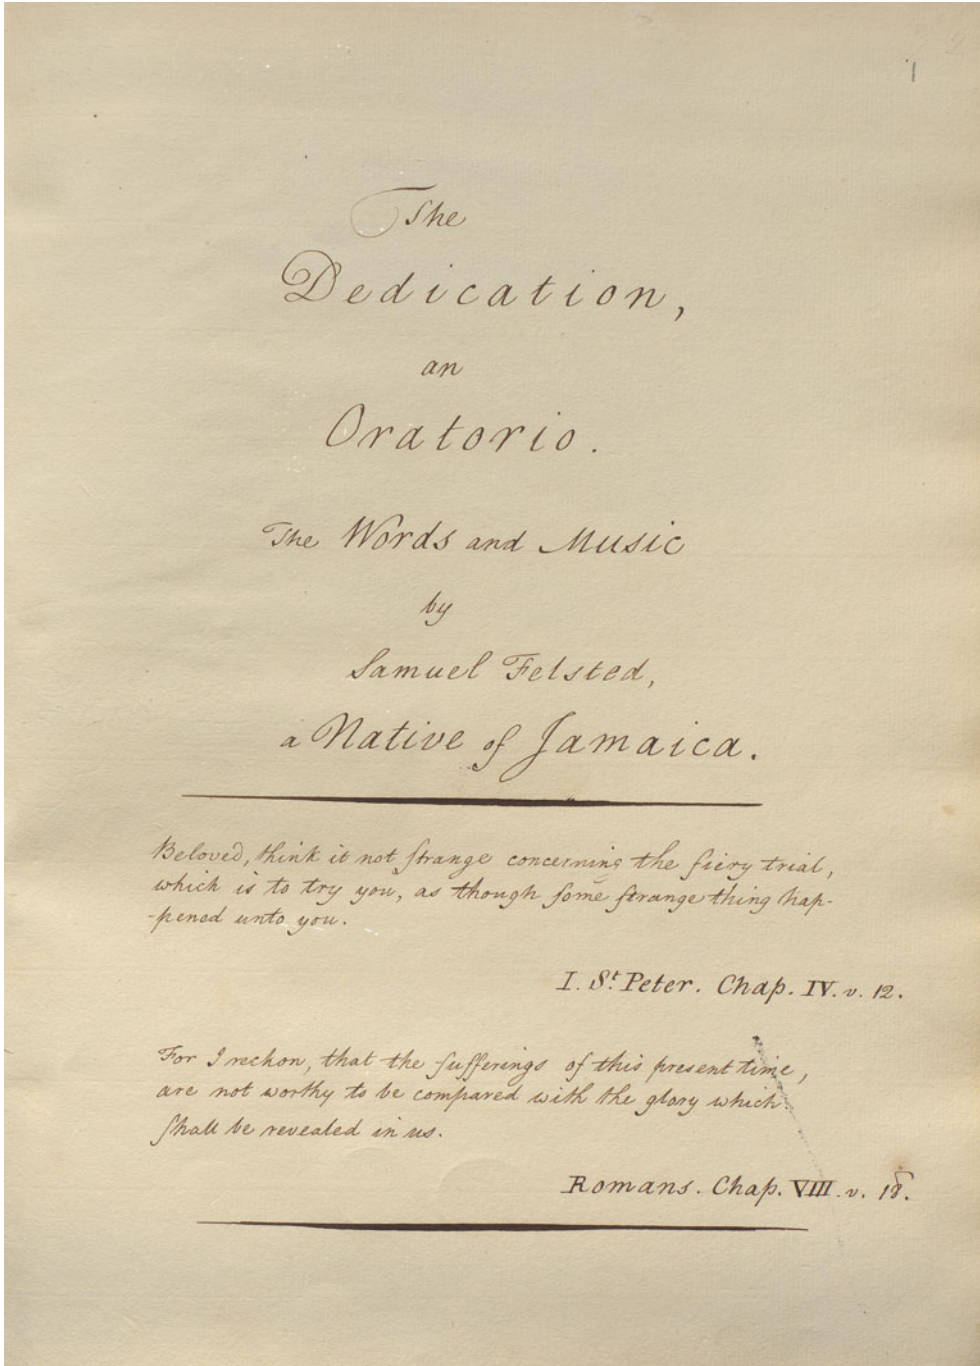 1
The
Dedication,
an
Oratorio.
The Words and Music
by
Samuel Felsted,
a Native of Jamaica.
Beloved, think it not ſtrange concerning the fiery trial,
which is to try you, as though ſome ſtrange thing hap-
-pened unto you.
I. St. Peter. Chap. IV. v. 12.
For I reckon, that the ſufferings of this present time,
are not worthy to be compared with the glory which
ſhall be revealed in us.
Romans. Chap. VIII. v. 18.